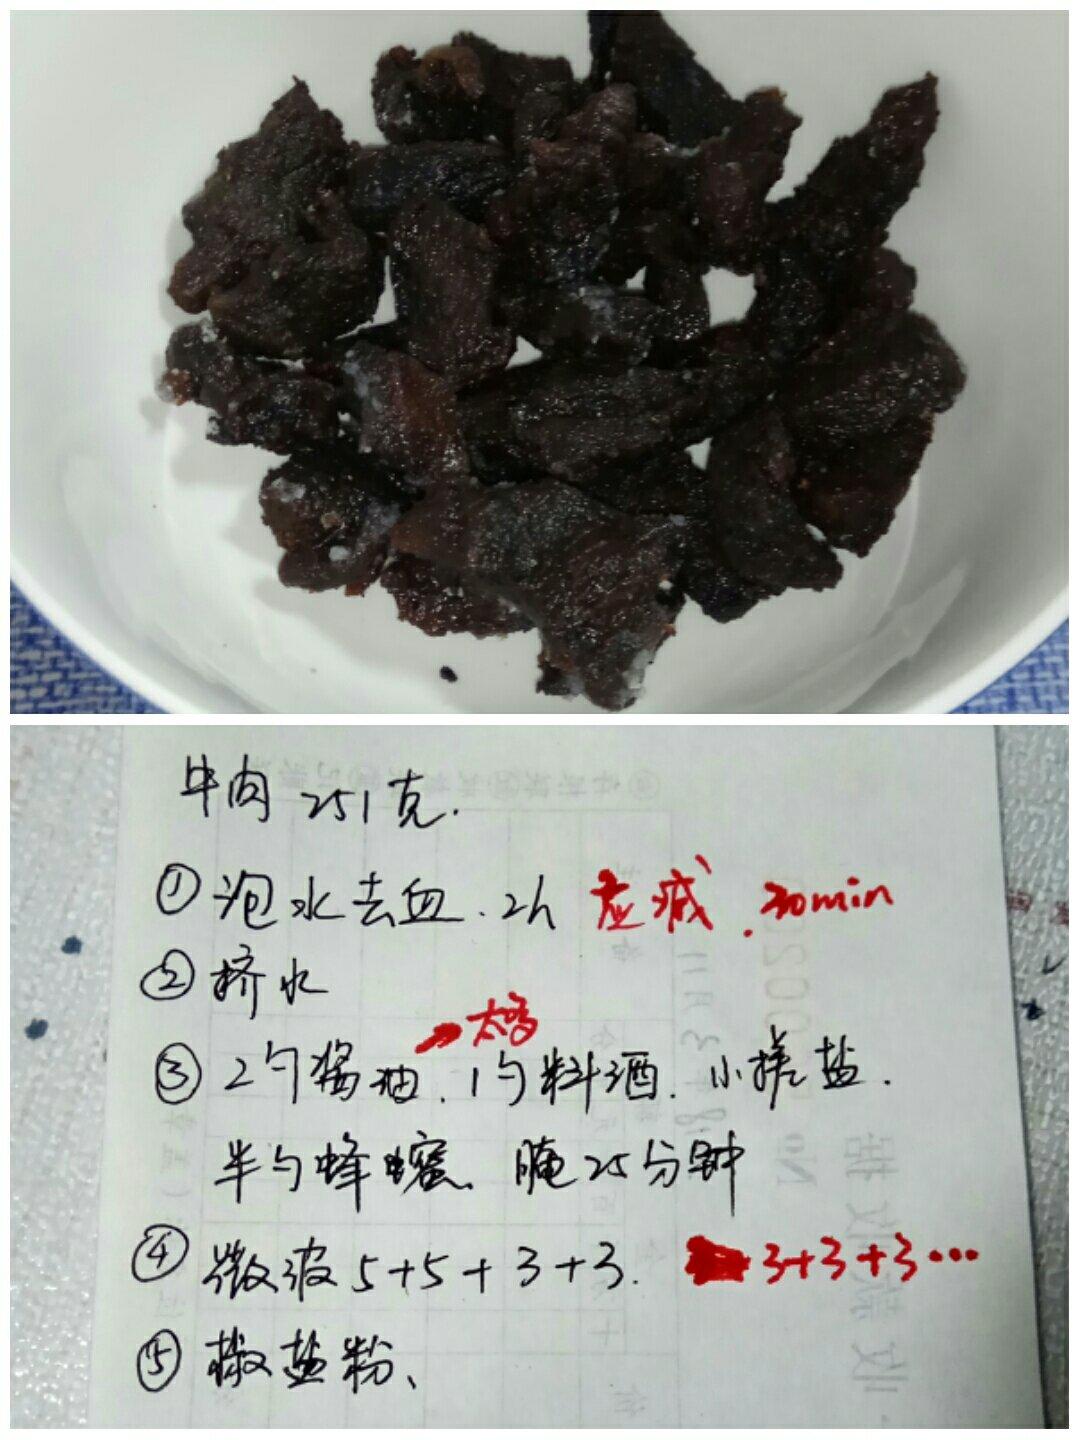 牛肉 251克.
① 泡水去血. 2h 应减. 30min
② 挤水
→太多
③ 2勺酱油. 1勺料酒. 小搓盐.
半勺蜂蜜. 腌25分钟
④ 微波5+5+3+3. 3+3+3…
⑤ 椒盐粉、